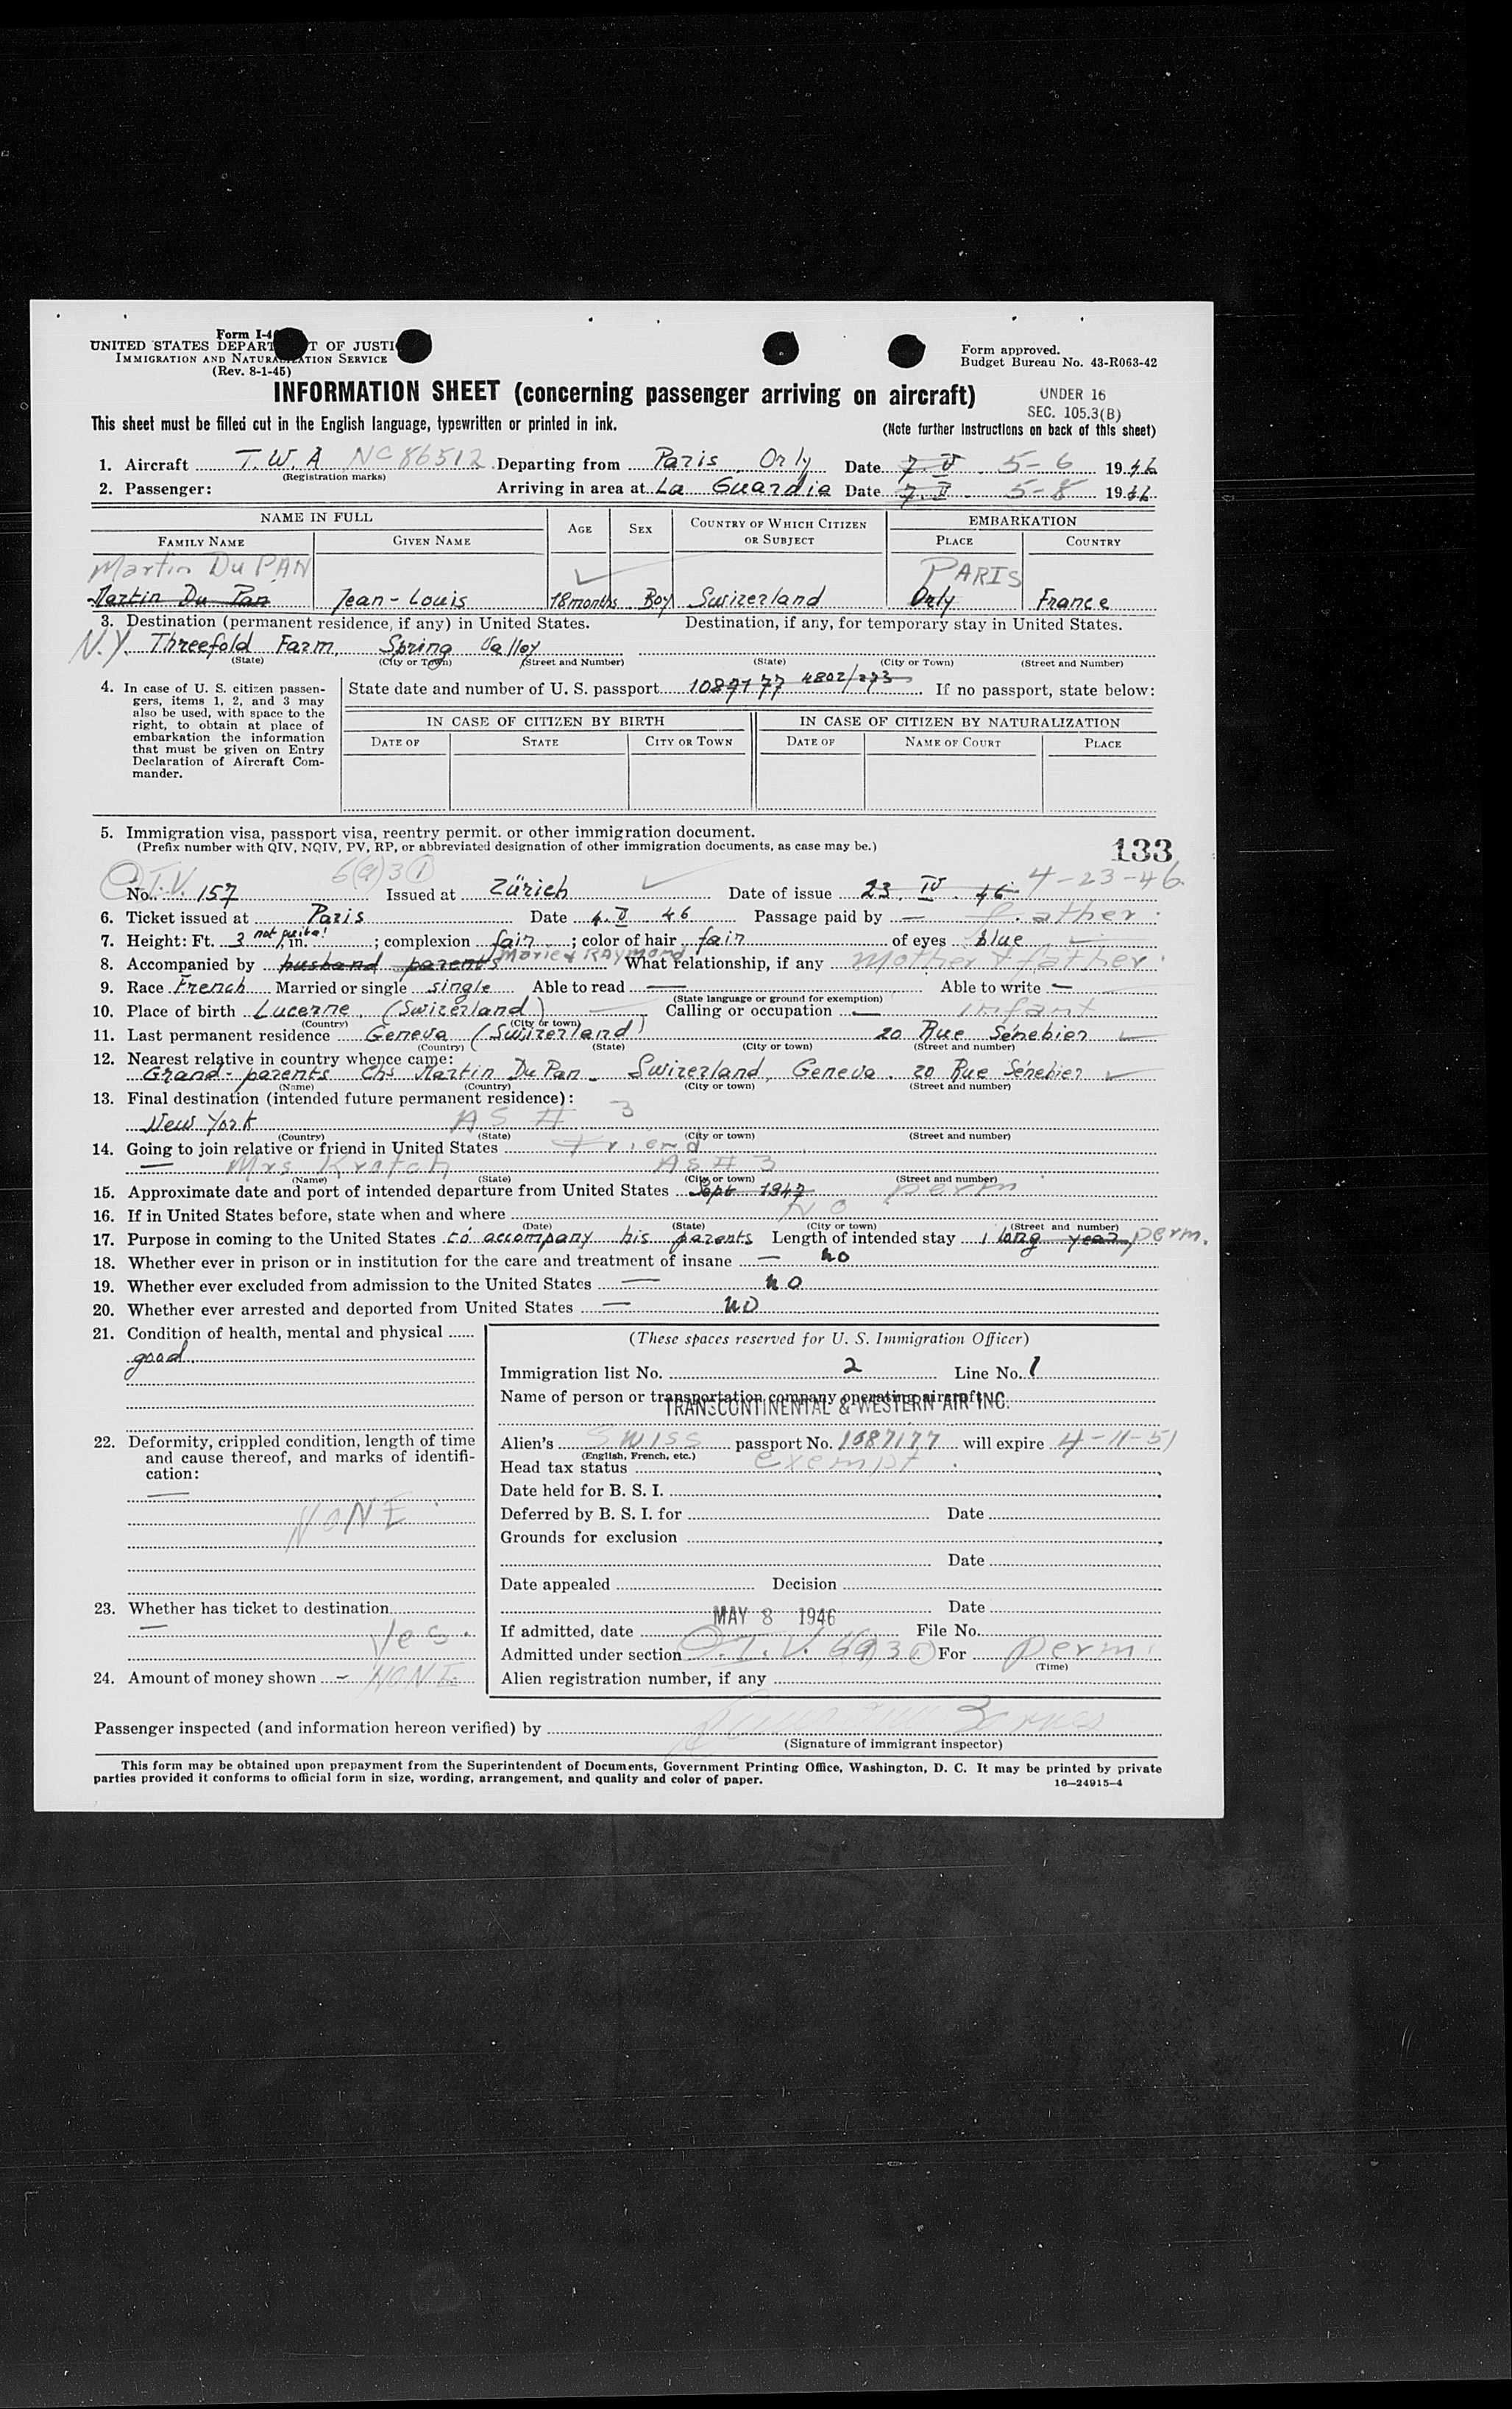 Form I-4
UNITED STATES DEPART T OF JUSTI
IMMIGRATION AND NATURALIZATION SERVICE
(Rev. 8-1-45)
Form approved.
Budget Bureau No. 43-R063-42
INFORMATION SHEET (concerning passenger arriving on aircraft)
UNDER 16
SEC. 105.3(B)
This sheet must be filled out in the English language, typewritten or printed in ink.
(Note further instructions on back of this sheet)
1. Aircraft T.W.A NC 86512 Departing from Paris Orly Date 7. V. 5-6 1946
(Registration marks)
2. Passenger: Arriving in area at La Guardia Date 7. V. 5-8 1946
NAME IN FULL AGE SEX COUNTRY OF WHICH CITIZEN OR SUBJECT EMBARKATION
FAMILY NAME GIVEN NAME PLACE COUNTRY
Martin Du PAN PARIS
Martin Du Pan Jean-Louis 18 months Boy Swizerland Orly France
3. Destination (permanent residence, if any) in United States. Destination, if any, for temporary stay in United States.
N.Y. Threefold Farm, Spring Valley
(State) (City or Town) (Street and Number) (State) (City or Town) (Street and Number)
4. In case of U. S. citizen passengers, items 1, 2, and 3 may also be used, with space to the right, to obtain at place of embarkation the information that must be given on Entry Declaration of Aircraft Commander.
State date and number of U. S. passport 1087177 4802/273 If no passport, state below:
IN CASE OF CITIZEN BY BIRTH IN CASE OF CITIZEN BY NATURALIZATION
DATE OF STATE CITY OR TOWN DATE OF NAME OF COURT PLACE
5. Immigration visa, passport visa, reentry permit. or other immigration document.
(Prefix number with QIV, NQIV, PV, RP, or abbreviated designation of other immigration documents, as case may be.)
133
6(a)3(1) 4-23-46
Q.I.V. No. 157 Issued at Zürich Date of issue 23. IV. 46
6. Ticket issued at Paris Date 4. V 46 Passage paid by — father
7. Height: Ft. 3 not quite!, in. ; complexion fair ; color of hair fair of eyes blue
8. Accompanied by husband parents Marie & RAYMOND What relationship, if any Mother & father
9. Race French Married or single single Able to read — Able to write —
(State language or ground for exemption)
10. Place of birth Lucerne, (Swizerland) Calling or occupation — infant
(Country) (City or town)
11. Last permanent residence Geneva (Swizerland) 20 Rue Sénebier
(Country) (State) (City or town) (Street and number)
12. Nearest relative in country whence came:
Grand-parents Chs Martin Du Pan. Swizerland, Geneva. 20 Rue Sénebier
(Name) (Country) (City or town) (Street and number)
13. Final destination (intended future permanent residence):
New York AS # 3
(Country) (State) (City or town) (Street and number)
14. Going to join relative or friend in United States Friend
— Mrs Kratch AS # 3
(Name) (State) (City or town) (Street and number)
15. Approximate date and port of intended departure from United States Sept 1947 perm
16. If in United States before, state when and where NO
(Date) (State) (City or town) (Street and number)
17. Purpose in coming to the United States to accompany his parents Length of intended stay 1 long year, perm.
18. Whether ever in prison or in institution for the care and treatment of insane — no
19. Whether ever excluded from admission to the United States — no
20. Whether ever arrested and deported from United States — no
21. Condition of health, mental and physical
good.
22. Deformity, crippled condition, length of time and cause thereof, and marks of identification:
—
NONE
23. Whether has ticket to destination
— Yes.
24. Amount of money shown – NONE
(These spaces reserved for U. S. Immigration Officer)
Immigration list No. 2 Line No. 1
Name of person or transportation company operating aircraft
TRANSCONTINENTAL & WESTERN AIR INC.
Alien's SWISS passport No. 1087177 will expire 4-11-51
(English, French, etc.)
Head tax status exempt
Date held for B. S. I.
Deferred by B. S. I. for Date
Grounds for exclusion
Date
Date appealed Decision
Date
MAY 8 1946
If admitted, date File No.
Admitted under section Q.I.V. 6(a)3(1) For perm.
(Time)
Alien registration number, if any
Passenger inspected (and information hereon verified) by
(Signature of immigrant inspector)
This form may be obtained upon prepayment from the Superintendent of Documents, Government Printing Office, Washington, D. C. It may be printed by private
parties provided it conforms to official form in size, wording, arrangement, and quality and color of paper.
16—24915-4